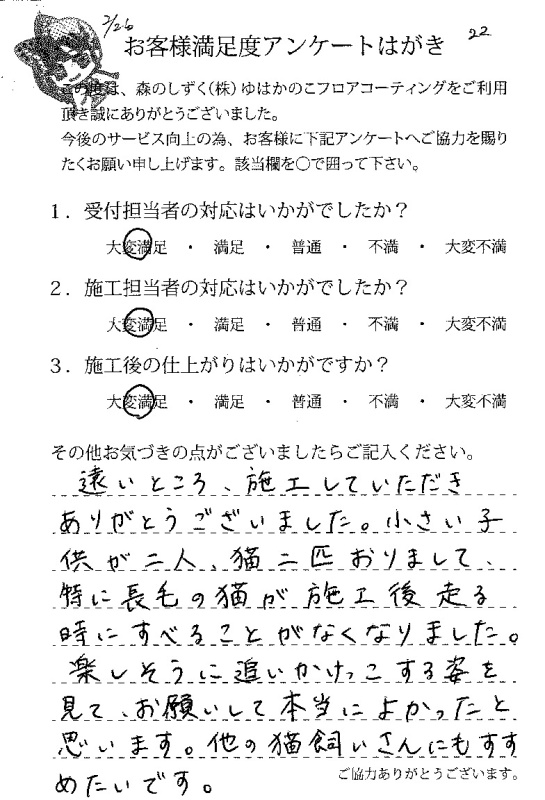 2/26
22
お客様満足度アンケートはがき
この度は、森のしずく(株)ゆはかのこフロアコーティングをご利用
頂き誠にありがとうございました。
今後のサービス向上の為、お客様に下記アンケートへご協力を賜り
たくお願い申し上げます。該当欄を○で囲って下さい。
1．受付担当者の対応はいかがでしたか？
大変満足 ・ 満足 ・ 普通 ・ 不満 ・ 大変不満
2．施工担当者の対応はいかがでしたか？
大変満足 ・ 満足 ・ 普通 ・ 不満 ・ 大変不満
3．施工後の仕上がりはいかがですか？
大変満足 ・ 満足 ・ 普通 ・ 不満 ・ 大変不満
その他お気づきの点がございましたらご記入ください。
遠いところ、施工していただき
ありがとうございました。小さい子
供が二人、猫二匹おりまして、
特に長毛の猫が施工後走る
時にすべることがなくなりました。
楽しそうに追いかけっこする姿を
見て、お願いして本当によかったと
思います。他の猫飼いさんにもすす
めたいです。
ご協力ありがとうございます。